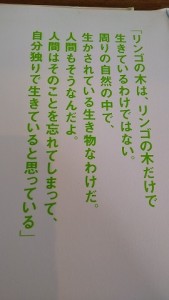 「リンゴの木は、リンゴの木だけで
生きているわけではない。
周りの自然の中で、
生かされている生き物なわけだ。
人間もそうなんだよ。
人間はそのことを忘れてしまって、
自分独りで生きていると思っている」